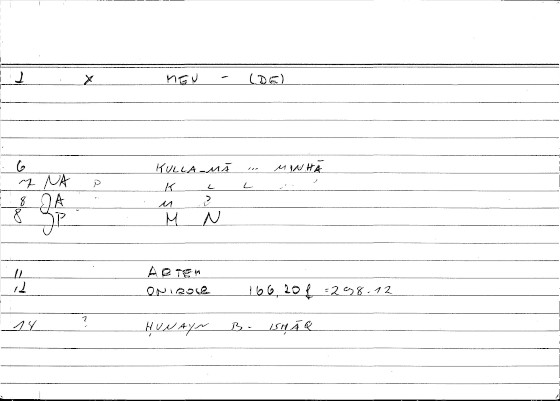 1 x MEU - (DE)
6 KULLA-MĀ ... MINHĀ
7 NA P K L L
8 A M ?
8 P M N
11 ARTEM
12 ONIROCR 166,20 f = 298.12
14 ? ḤUNAYN B. ISḤĀQ